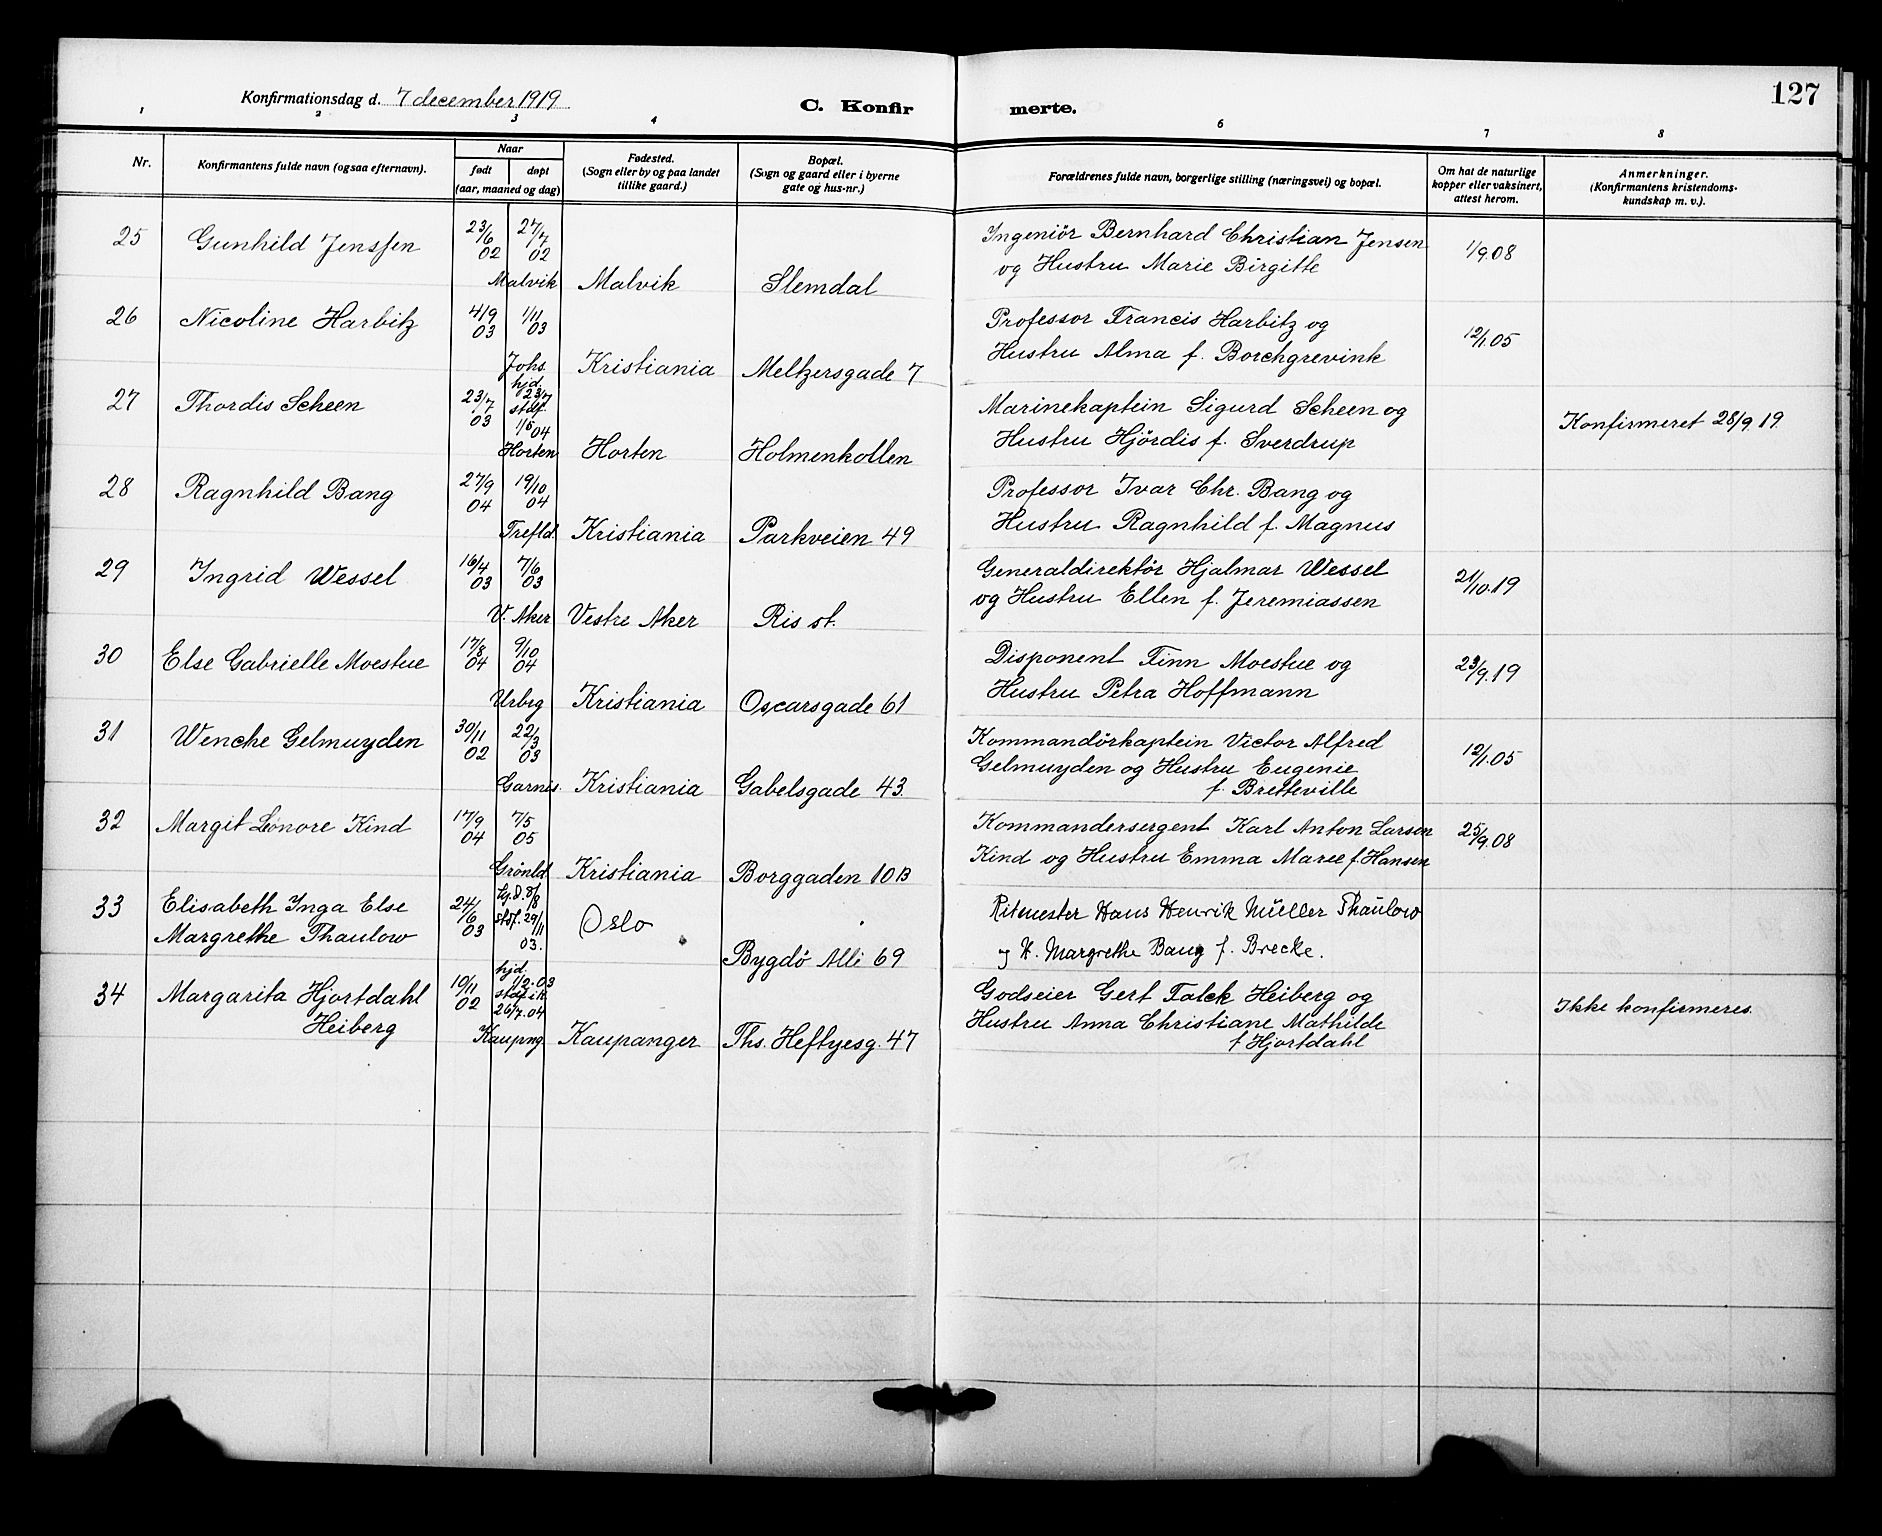 127
Konfirmationsdag d. 7 december 1919
C. Konfir merte.
1 2 3 4 6 7 8
Nr.
Konfirmantens fulde navn (ogsaa efternavn).
Naar
født døpt
(aar, maaned og dag)
Fødested.
(Sogn eller by og paa landet
tillike gaard.)
Bopæl.
(Sogn og gaard eller i byerne
gate og hus-nr.)
Forældrenes fulde navn, borgerlige stilling (næringsvei) og bopæl.
Om hat de naturlige
kopper eller vaksinert,
attest herom.
Anmerkninger.
(Konfirmantens kristendoms-
kundskap m. v.).
25 Gunhild Jenssen 23/6 02 27/7 02 Ingeniör Bernhard Christian Jensen 1/9.08
og Hustru Marie Birgitte
Malvik Malvik Slemdal
26 Nicoline Harbitz 4/9 03 1/11 03 Professor Francis Harbitz og 12/1.05
Hustru Alma f. Borchgrevink
Johs. Kristiania Meltzersgade 7
27 Thordis Scheen 23/7 03 hjd. 23/7 stdf. 1/5 04 Marinekaptein Sigurd Scheen og Konfirmeret 28/9 19.
Hustru Hjördis f. Sverdrup
Horten Horten Holmenkollen
28 Ragnhild Bang 27/9 04 19/10 04 Professor Ivar Chr. Bang og
Hustru Ragnhild f. Magnus
Trefld. Kristiania Parkveien 49
29 Ingrid Wessel 16/4 03 7/6 03 Generaldirektör Hjalmar Wessel 21/10.19
og Hustru Ellen f. Jeremiassen
V. Aker Vestre Aker Ris st.
30 Else Gabrielle Moestue 17/8 04 9/10 04 Disponent Finn Moestue og 23/9.19
Hustru Petra Hoffmann
Urbrg Kristiania Oscarsgade 61
31 Wencke Gelmuyden 30/11 02 22/3 03 Kommandörkaptein Victor Alfred 12/1.05
Gelmuyden og Hustru Eugenie
f. Bretteville
Garnis. Kristiania Gabelsgade 43.
32 Margit Leonore Kind 17/9 04 7/5 05 Kommandersergent Karl Anton Larsen 25/9.08
Kind og Hustru Emma Marie f Hansen
Grönld Kristiania Borggaden 10B
33 Elisabeth Inga Else 24/6 03 stdf. 29/11 03. Oslo Ritmester Hans Henrik Müller Thaulow
Margrethe Thaulow
Bygdö Alli 69 og H. Margrethe Bang f. Brecke.
34 Margarita Hjortdahl 10/11 02 hjd. 1/2.03 stdf. i k. 26/7.04 Godseier Gert Falck Heiberg og Ikke konfirmeres.
Heiberg Hustru Anna Christiane Mathilde
f Hjortdahl
Kaupng Kaupanger Ths. Heftyesg. 47